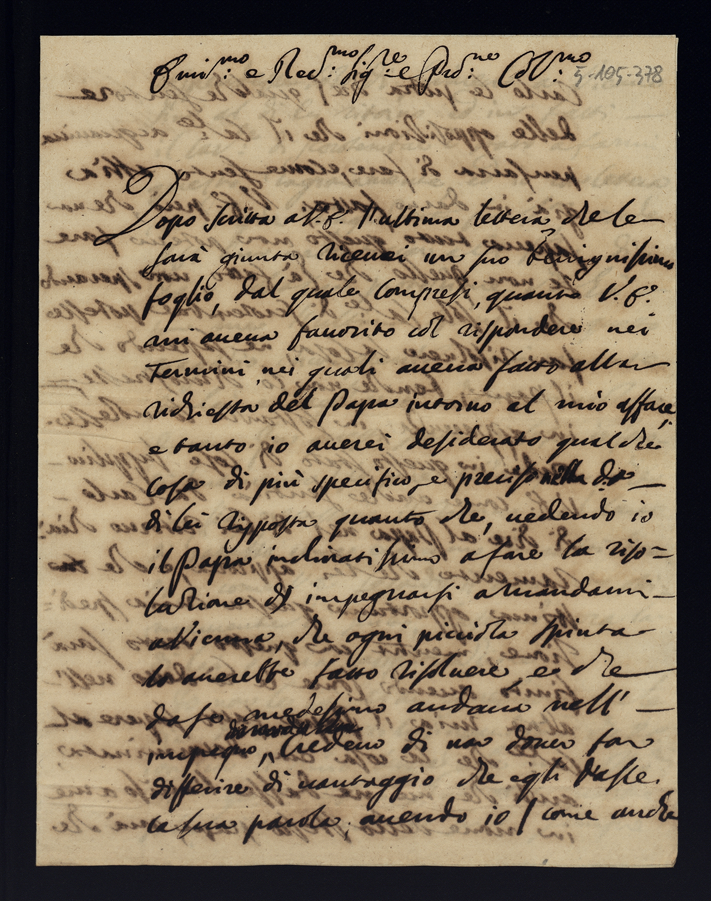 Emin.mo e Rev.mo Sig.re e Prd.ne Col.mo
5-105-378
Dopo scritta a V. E. l'ultima lettera che le
sarà giunta ricevei un suo benignissimo
foglio, dal quale compresi, quanto V. E.
mi aveva favorito col rispondere nei
termini, nei quali aveva fatto alla
richiesta del Papa intorno al mio affare,
e tanto io averei desiderato qualche
cosa di più specifico, e preciso nella
di lei risposta quanto che, vedendo io
il Papa inclinatissimo a fare la riso=
luzione di impegnarsi a mandarmi
a Vienna, che ogni picciola spinta
lo averebbe fatto risolvere, e che
da se medesimo andava nell'
impegno, credevo di non dover far
differire di vantaggio che egli dasse
la sua parola. avendo io / come anche